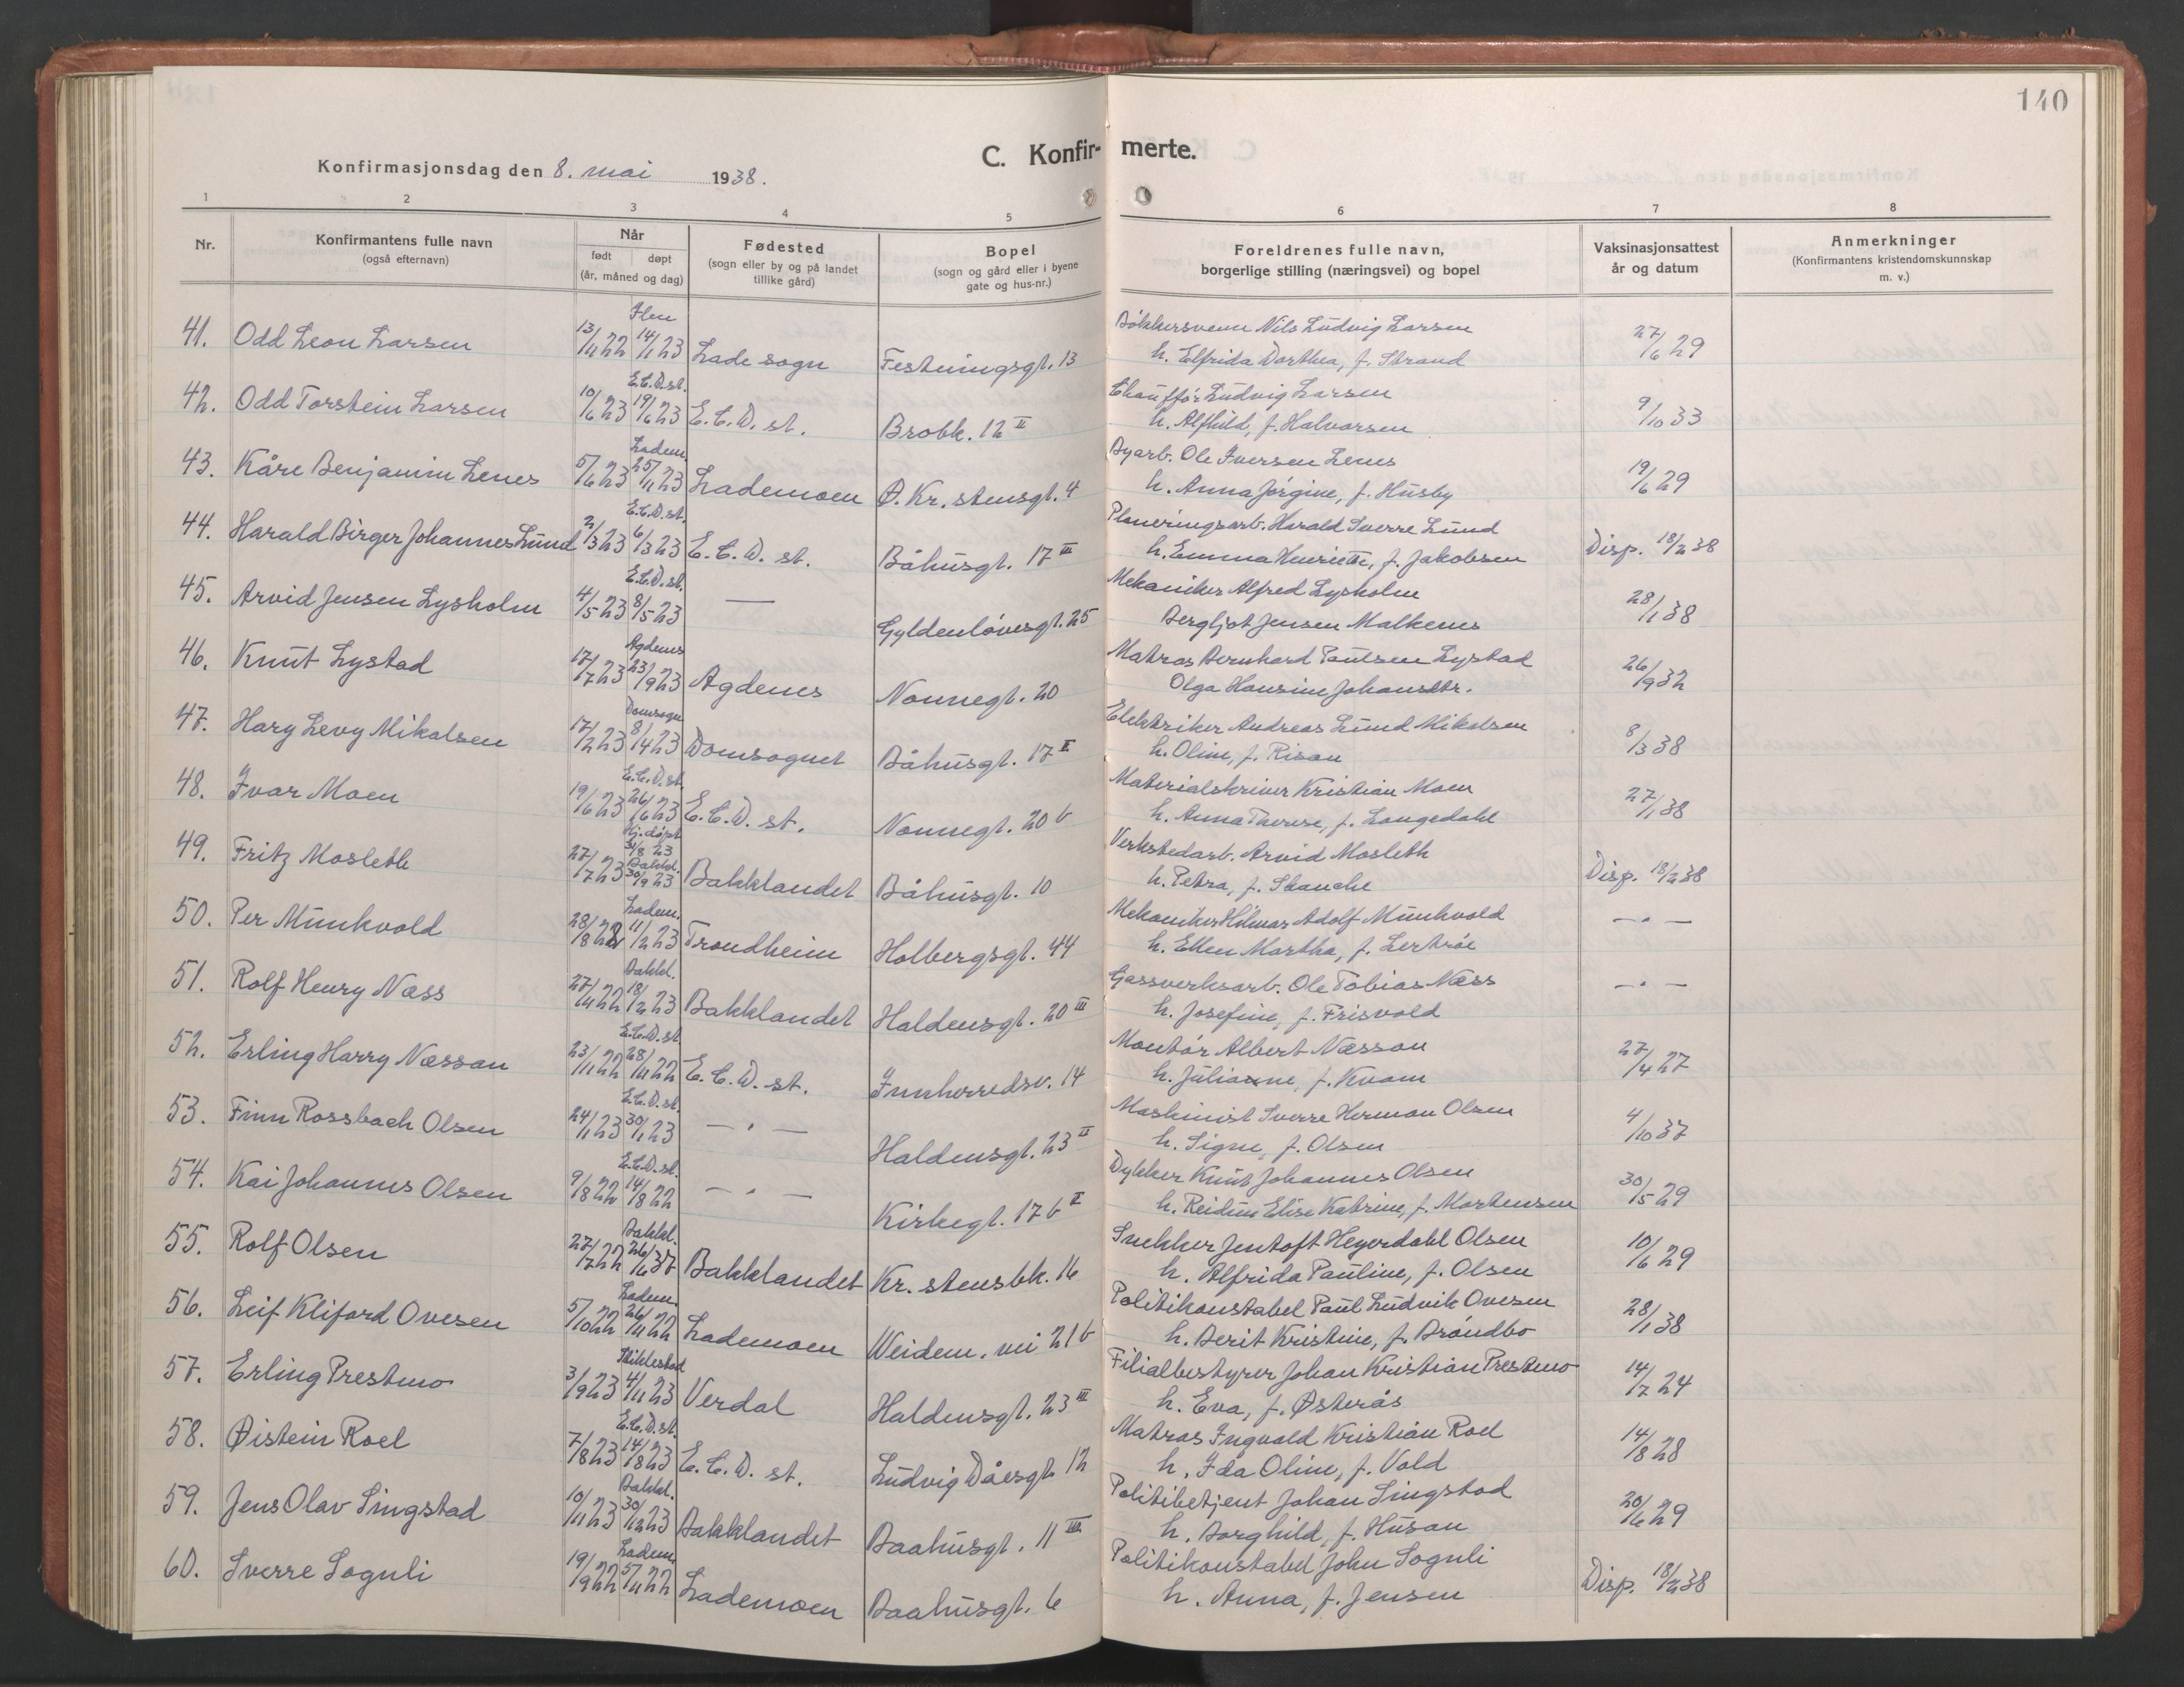 140
C. Konfir- merte.
Konfirmasjonsdag den 8. mai 1938.
1 2 3 4 5 6 7 8
Nr. Konfirmantens fulle navn (også efternavn) Når født døpt (år, måned og dag) Fødested (sogn eller by og på landet tillike gård) Bopel (sogn og gård eller i byene gate og hus-nr.) Foreldrenes fulle navn, borgerlige stilling (næringsvei) og bopel Vaksinasjonsattest år og datum Anmerkninger (Konfirmantens kristendomskunnskap m. v.)
Ilen
41. Odd Leon Larsen 13/11 22 14/1 23 Lade sogn Festningsgt. 13 Bøkkersvenn Nils Ludvig Larsen 27/6 29
h. Elfrida Dorthea, f. Strand
E.C.D.st.
42. Odd Torstein Larsen 10/6 23 19/6 23 E.C.D. st. Brobk. 12 II Chauffør Ludvig Larsen 9/10 33
h. Alfhild, f. Halvorsen
Ladem.
43. Kåre Benjamin Lenes 5/6 23 25/11 23 Lademoen Ø. Kr. stensgt. 4 Byarb. Ole Iversen Lenes 19/6 29
h. Anna Jørgine, f. Husby
E.C.D.st.
44. Harald Birger Johannes Lund 2/3 23 6/3 23 E.C.D. st. Båhusgt. 17 III Planeringsarb. Harald Sverre Lund Disp. 18/2 38
h. Emma Henriette, f. Jakobsen
E.C.D.st.
45. Arvid Jensen Lysholm 4/5 23 8/5 23 — Gyldenløvesgt. 25 Mekaniker Alfred Lysholm 28/1 38
Bergljot Jensen Malkenes
Agdenes
46. Knut Lystad 17/7 23 23/9 23 Agdenes Nonnegt. 20 Matros Bernhard Paulsen Lystad 26/9 32
Olga Hansine Johansdtr.
Domsogn
47. Hary Levy Mikalsen 17/2 23 8/4 23 Domsognet Båhusgt. 17 II Elektriker Andreas Lund Mikalsen 8/3 38
h. Oline, f. Risan
E.C.D.st.
48. Ivar Moen 19/6 23 26/6 23 E.C.D. st. Nonnegt. 20 b Materialskriver Kristian Moen 27/1 38
h. Anna Therese, f. Langedahl
Hj.døpt 31/8 23 Bakkl.
49. Fritz Mosleth 27/7 23 30/9 23 Bakklandet Båhusgt. 10 Verkstedarb. Arvid Mosleth Disp. 18/2 38
h. Petra, f. Skanche
Ladem.
50. Per Munkvold 28/8 22 11/2 23 Trondheim Holbergsgt. 44 Mekaniker Hilmar Adolf Munkvold — . —
h. Ellen Martha, f. Lertrøe
Bakkl.
51. Rolf Henry Næss 27/11 22 18/2 23 Bakklandet Haldensgt. 20 III Gassverksarb. Ole Tobias Næss — . —
h. Josefine, f. Frisvold
E.C.D.st
52. Erling Harry Næssan 23/11 22 28/11 22 E.C.D. st. Innherredsv. 14 Montør Albert Næssan 27/4 27
h. Julianne, f. Kvam
E.C.D.st.
53. Finn Rossbach Olsen 24/1 23 30/1 23 — . — Haldensgt. 23 II Maskinist Sverre Herman Olsen 4/10 37
h. Signe, f. Olsen
E.C.D.st.
54. Kai Johannes Olsen 9/8 22 14/8 22 — . — Kirkegt. 17 b II Dykker Knut Johannes Olsen 30/5 29
h. Reidun Elise Katrine, f. Mortensen
Bakkl.
55. Rolf Olsen 27/7 22 26/6 37 Bakklandet Kr. stensbk. 16 Snekker Jentoft Heyerdahl Olsen 10/6 29
h. Alfrida Pauline, f. Olsen
Ladem.
56. Leif Kliford Ovesen 5/10 22 26/11 22 Lademoen Weidem. vei 21 b Politikonstabel Paul Ludvik Ovesen 28/1 38
h. Berit Kristine, f. Brøndbo
Stiklestad
57. Erling Prestmo 3/9 23 4/11 23 Verdal Haldensgt. 23 III Filialbestyrer Johan Kristian Prestmo 14/7 24
h. Eva, f. Østerås
E.C.D.st.
58. Øistein Roel 7/8 23 14/8 23 E.C.D. st. Ludvig Dåesgt. 12 Matros Ingvald Kristian Roel 14/8 28
h. Ida Oline, f. Vold
Bakkl.
59. Jens Olav Singstad 10/11 23 30/12 23 Bakklandet Baahusgt. 11 III Politibetjent Johan Singstad 20/6 29
h. Borghild, f. Husan
Ladem.
60. Sverre Sognli 19/9 22 5/11 22 Lademoen Baahusgt. 6 Politikonstabel John Sognli Disp. 18/2 38
h. Anna, f. Jensen